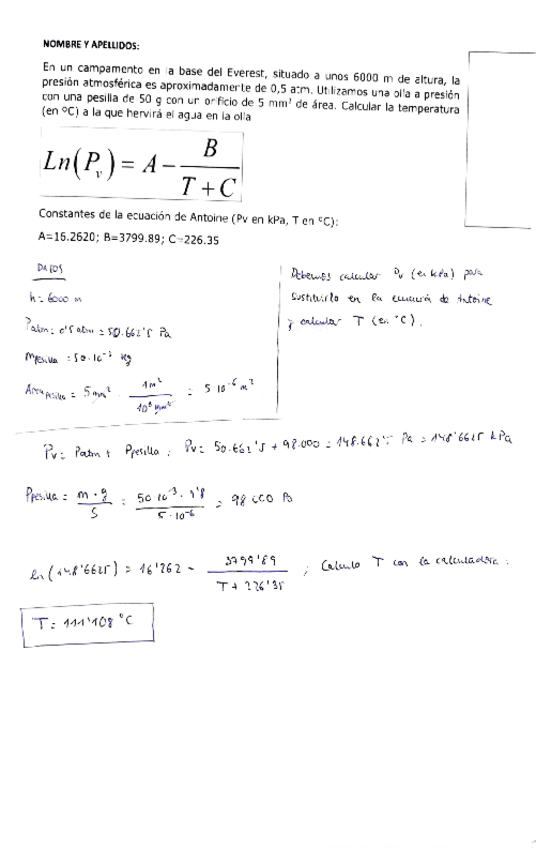 NOMBRE Y APELLIDOS:
En un campamento en la base del Everest, situado a unos 6000 m de altura, la
presión atmosférica es aproximadamente de 0,5 atm. Utilizamos una olla a presión
con una pesilla de 50 g con un orificio de 5 mm² de área. Calcular la temperatura
(en ºC) a la que hervirá el agua en la olla
Ln(P_v) = A - B / (T + C)
Constantes de la ecuación de Antoine (Pv en kPa, T en ºC):
A=16.2620; B=3799.89; C=226.35
DATOS
h = 6000 m
Patm = 0'5 atm = 50.662'5 Pa
Mpesilla = 50·10⁻³ kg
Area pesilla = 5 mm² · 1m² / 10⁶ mm² = 5 10⁻⁶ m²
Debemos calcular Pv (en kPa) para
sustituirlo en la ecuación de Antoine
y calcular T (en °C).
Pv = Patm + Ppesilla ; Pv = 50.662'5 + 98.000 = 148.662'5 Pa = 148'6625 kPa
Ppesilla = m · g / S = 50 10⁻³ · 9'8 / 5 · 10⁻⁶ = 98 000 Pa
ln (148'6625) = 16'262 - 3799'89 / T + 226'35 ; Calculo T con la calculadora :
T = 111'108 °C